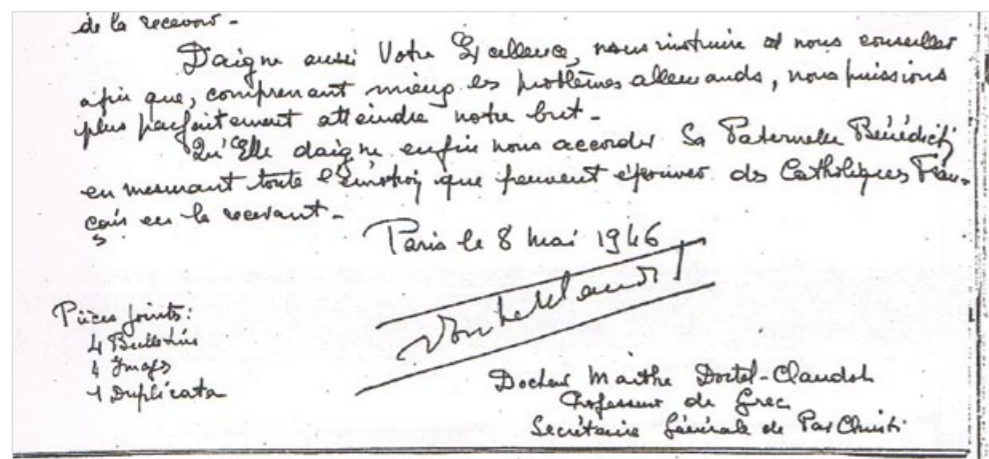 de la recevoir -
Daigne aussi Votre Excellence, nous instruire et nous conseiller
afin que, comprenant mieux les problèmes allemands, nous puissions
plus parfaitement atteindre notre but -
Qu'Elle daigne enfin nous accorder Sa Paternelle Bénédict°
en mesurant toute l'émotion que peuvent éprouver des Catholiques Fran-
çais en la recevant -
Paris le 8 Mai 1946
Pièces jointes :
4 Bulletins
4 Images
1 Duplicata
Docteur Marthe Dortel-Claudot
Professeur de Grec
Secrétaire Générale de Pax Christi